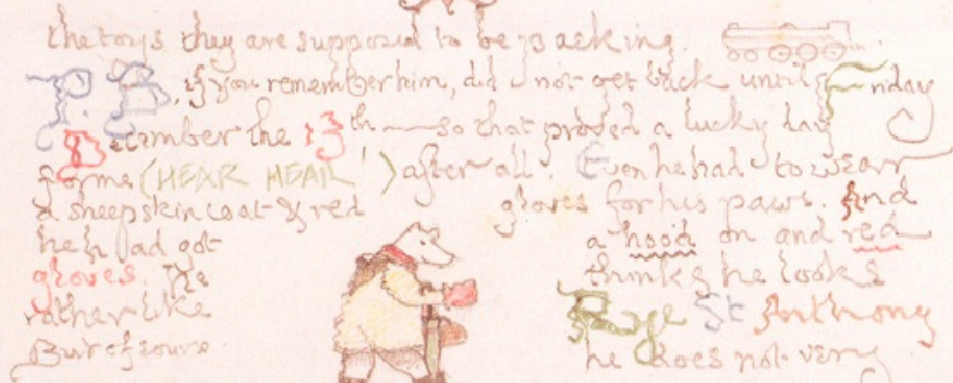 the toys they are supposed to be packing.
P.B., if you remember him, did not get back until Friday
December the 13th — so that proved a lucky day
for me (HEAR HEAR!) after all. Even he had to wear
a sheepskin coat & red gloves for his paws. And
he had got a hood on and red
gloves. He thinks he looks
rather like Rye St Anthony
But of course he does not very